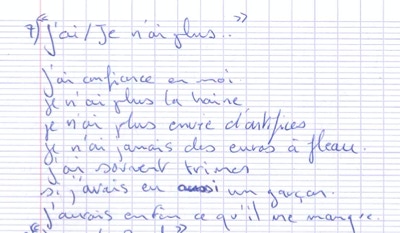 7) «j'ai / Je n'ai plus.. »
j'ai confiance en moi.
je n'ai plus la haine
je n'ai plus envie d'artifices
je n'ai jamais des euros à fleau.
j'ai souvent trimer
si j'avais eu un garçon.
j'aurais enfin ce qu'il me manque.